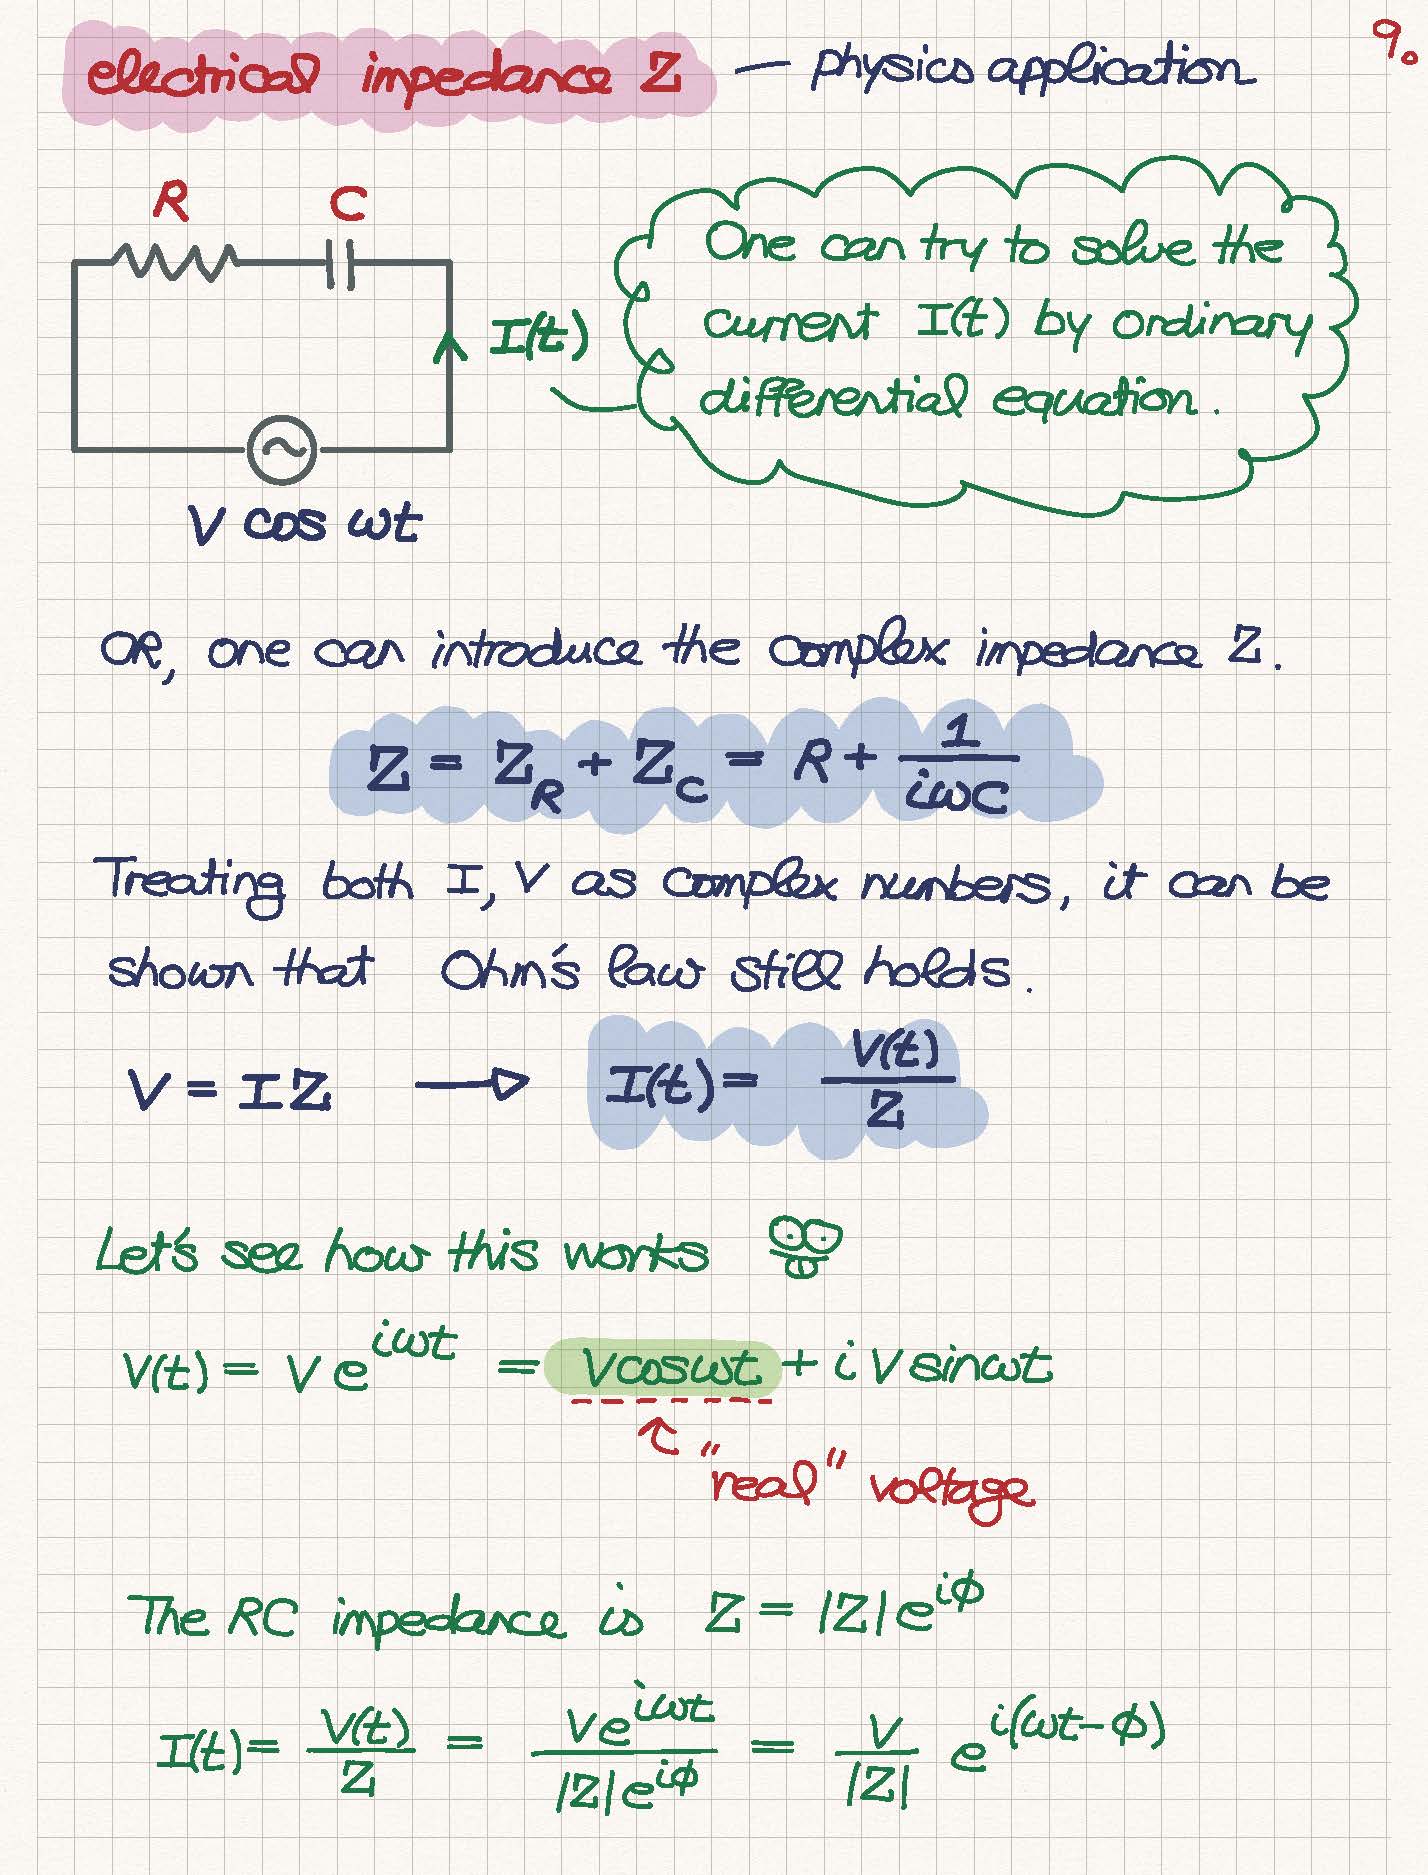 electrical impedance Z — physics application
9.
R C
I(t)
V cos ωt
One can try to solve the
current I(t) by ordinary
differential equation.
OR, one can introduce the complex impedance Z.
Z = Z_R + Z_C = R + 1/(iωC)
Treating both I, V as complex numbers, it can be
shown that Ohm's law still holds.
V = IZ → I(t) = V(t)/Z
Let's see how this works
V(t) = V e^{iωt} = V cos ωt + i V sin ωt
"real" voltage
The RC impedance is Z = |Z| e^{iφ}
I(t) = V(t)/Z = V e^{iωt}/(|Z| e^{iφ}) = V/|Z| e^{i(ωt-φ)}